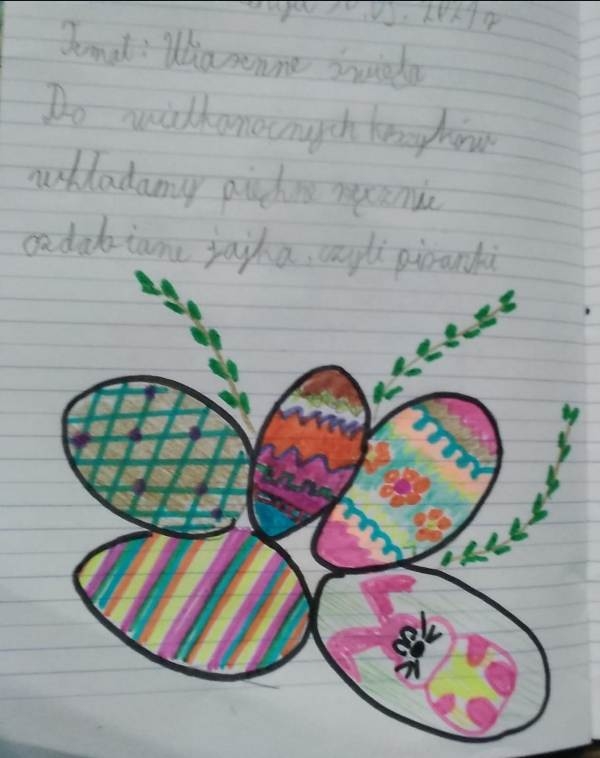 30.03.2021 r
Temat: Wiosenne święta
Do wielkanocnych koszyków
wkładamy piękne ręcznie
ozdabiane jajka, czyli pisanki